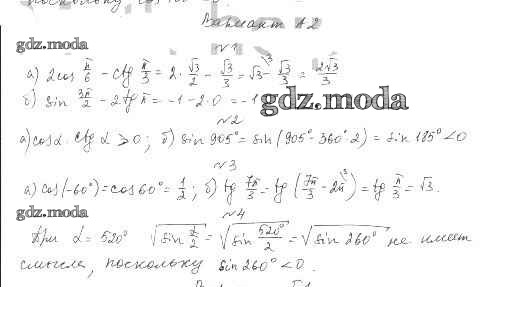 Вариант А2
gdz.moda
№1
а) 2cos π/6 - ctg π/3 = 2 · √3/2 - √3/3 = √3 - √3/3 = 2√3/3
б) sin 3π/2 - 2tg π = -1 - 2·0 = -1
gdz.moda
№2
а) cos α · ctg α ≥ 0; б) sin 905° = sin (905° - 360°·2) = sin 185° < 0
№3
а) cos (-60°) = cos 60° = 1/2; б) tg 7π/3 = tg (7π/3 - 2π) = tg π/3 = √3.
gdz.moda
№4
При α = 520° √sin α/2 = √sin 520°/2 = √sin 260° не имеет
смысла, поскольку sin 260° < 0.